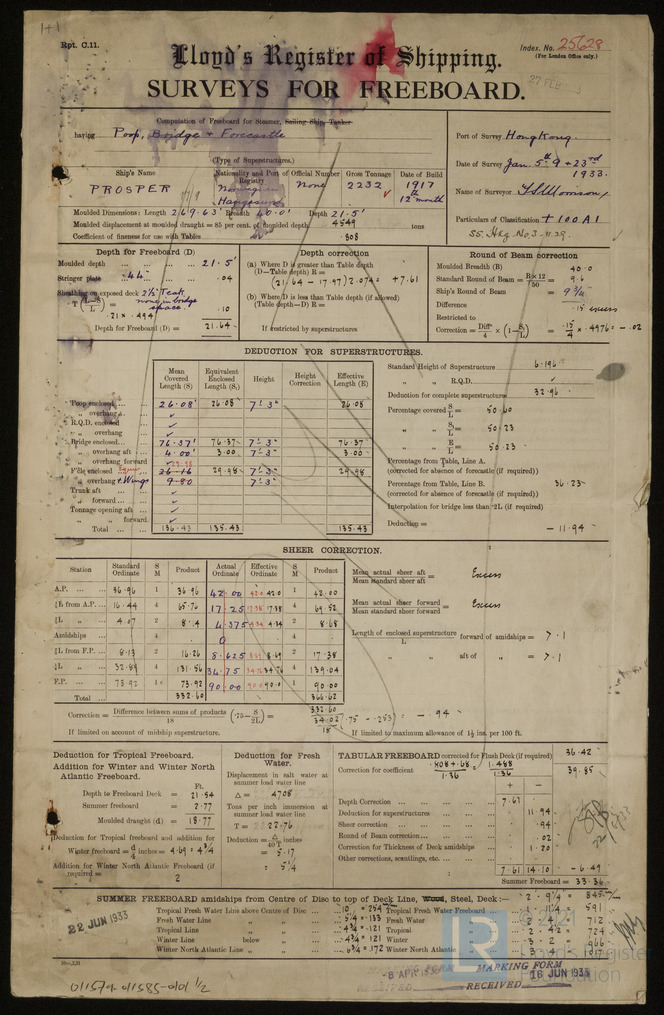 1+1
Rpt. C.11.
Index. No. 25628
(For London Office only.)
Lloyd's Register of Shipping.
27 FEB
SURVEYS FOR FREEBOARD.
Computation of Freeboard for Steamer, Sailing Ship, Tanker
having Poop, Bridge & Forecastle
(Type of Superstructures.)
Port of Survey Hong Kong.
Date of Survey Jan. 5th 9 & 23rd 1933.
Name of Surveyor
Particulars of Classification + 100 A1
SS. Hkg No.3 - 11.29.
Ship's Name
PROSPER
Nationality and Port of Registry
Norwegian
Haugesund
Official Number
None
Gross Tonnage
2232
Date of Build
1917
12th month
Moulded Dimensions: Length 269.63' Breadth 40.0' Depth 21.5'
Moulded displacement at moulded draught = 85 per cent. of moulded depth 4549 tons
Coefficient of fineness for use with Tables .808
Depth for Freeboard (D)
Moulded depth 21.5'
Stringer plate .44 .04
Sheathing on exposed deck 2½" Teak
none in bridge space.
T (L-S / L) .10
.21 x .494
Depth for Freeboard (D) = 21.64
Depth correction
(a) Where D is greater than Table depth
(D—Table depth) R =
(21.64 - 17.97) 2.074 = +7.61
(b) Where D is less than Table depth (if allowed)
(Table depth—D) R =
If restricted by superstructures
Round of Beam correction
Moulded Breadth (B) 40.0
Standard Round of Beam = B×12 / 50 = 9.6
Ship's Round of Beam = 9¾
Difference .15 excess
Restricted to
Correction = Diff / 4 × (1 - S₁ / L) = .15 / 4 × .4976 = - .02
DEDUCTION FOR SUPERSTRUCTURES.
Mean Covered Length (S) Equivalent Enclosed Length (S₁) Height Height Correction Effective Length (E)
Poop enclosed 26.08' 26.08 7'-3" 26.08
„ overhang
R.Q.D. enclosed
„ overhang
Bridge enclosed 76.37' 76.37 7'-3" 76.37
„ overhang aft 4.00' 3.00 7'-3" 3.00
„ overhang forward
F'cle enclosed 26.16 29.98 7'-3" 29.98
„ overhang & Wings 9.80 7'-3"
Trunk aft
„ forward
Tonnage opening aft
„ „ forward
Total 136.43 135.43 135.43
Standard Height of Superstructure 6.196
„ „ R.Q.D.
Deduction for complete superstructure 32.96
Percentage covered S / L = 50.60
„ „ S₁ / L = 50.23
„ „ E / L = 50.23
Percentage from Table, Line A.
(corrected for absence of forecastle (if required))
Percentage from Table, Line B. 36.23
(corrected for absence of forecastle (if required))
Interpolation for bridge less than ·2L (if required)
Deduction = - 11.94
SHEER CORRECTION.
Station Standard Ordinate S M Product Actual Ordinate Effective Ordinate S M Product
A.P. 36.96 1 36.96 42.00 42.0 42.0 1 42.00
⅙L from A.P. 16.44 4 65.76 17.25 17.38 17.38 4 69.52
⅓L „ 4.07 2 8.14 4.375 4.34 4.34 2 8.68
Amidships 4 0 4
⅓L from F.P. 8.13 2 16.26 8.625 8.69 8.69 2 17.38
⅙L „ 32.89 4 131.56 34.75 34.76 34.76 4 139.04
F.P. 73.92 1 73.92 90.00 90.0 90.0 1 90.00
Total 332.60 366.62
Mean actual sheer aft / Mean standard sheer aft = Excess
Mean actual sheer forward / Mean standard sheer forward = Excess
Length of enclosed superstructure / L forward of amidships = 7.1
„ „ aft of „ = 7.1
Correction = Difference between sums of products / 18 (·75 - S / 2L) = 332.60 34.02 / 18 (.75 - .253) = - .94
If limited on account of midship superstructure.
If limited to maximum allowance of 1½ ins. per 100 ft.
Deduction for Tropical Freeboard.
Addition for Winter and Winter North Atlantic Freeboard.
Ft.
Depth to Freeboard Deck = 21.54
Summer freeboard = 2.77
Moulded draught (d) = 18.77
Deduction for Tropical freeboard and addition for
Winter freeboard = d / 4 inches = 4.69 = 4¾
Addition for Winter North Atlantic Freeboard (if required) = 2
Deduction for Fresh Water.
Displacement in salt water at summer load water line
Δ = 4708
Tons per inch immersion at summer load water line
T = 22.76
Deduction = Δ / 40T inches
= 5.17
= 5¼
TABULAR FREEBOARD corrected for Flush Deck (if required) 36.42
Correction for coefficient .808 + .68 / 1.36 1.488 / 1.36 39.85
+ -
Depth Correction 7.61
Deduction for superstructures 11.94
Sheer correction .94
Round of Beam correction .02
Correction for Thickness of Deck amidships 1.20
Other corrections, scantlings, etc.
7.61 14.10 - 6.49
Summer Freeboard = 33.36
SUMMER FREEBOARD amidships from Centre of Disc to top of Deck Line, Wood, Steel, Deck:— 2 - 9¼ = 845
Tropical Fresh Water Line above Centre of Disc 10 = 254 Tropical Fresh Water Freeboard 1 - 11¼ = 591
Fresh Water Line „ „ 5¼ = 133 Fresh Water „ 2 - 4 = 712
Tropical Line „ „ 4¾ = 121 Tropical „ 2 - 4½ = 724
Winter Line below „ 4¾ = 121 Winter „ 3 - 2 = 966
Winter North Atlantic Line „ „ 6¾ = 172 Winter North Atlantic „
22 JUN 1933
8 APR 1933
MARKING FORM
16 JUN 1933
RECEIVED
LR
© 2021
Lloyd's Register
Foundation
011579-011585-0101 ½